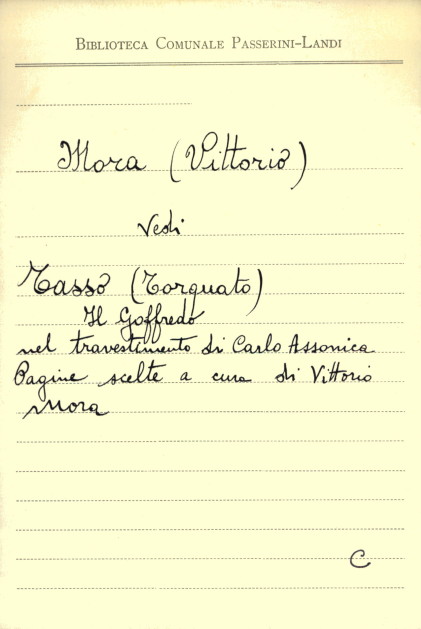 Biblioteca Comunale Passerini-Landi
Mora (Vittorio)
Vedi
Tasso (Torquato)
Il Goffredo
nel travestimento di Carlo Assonica
Pagine scelte a cura di Vittorio
Mora
C